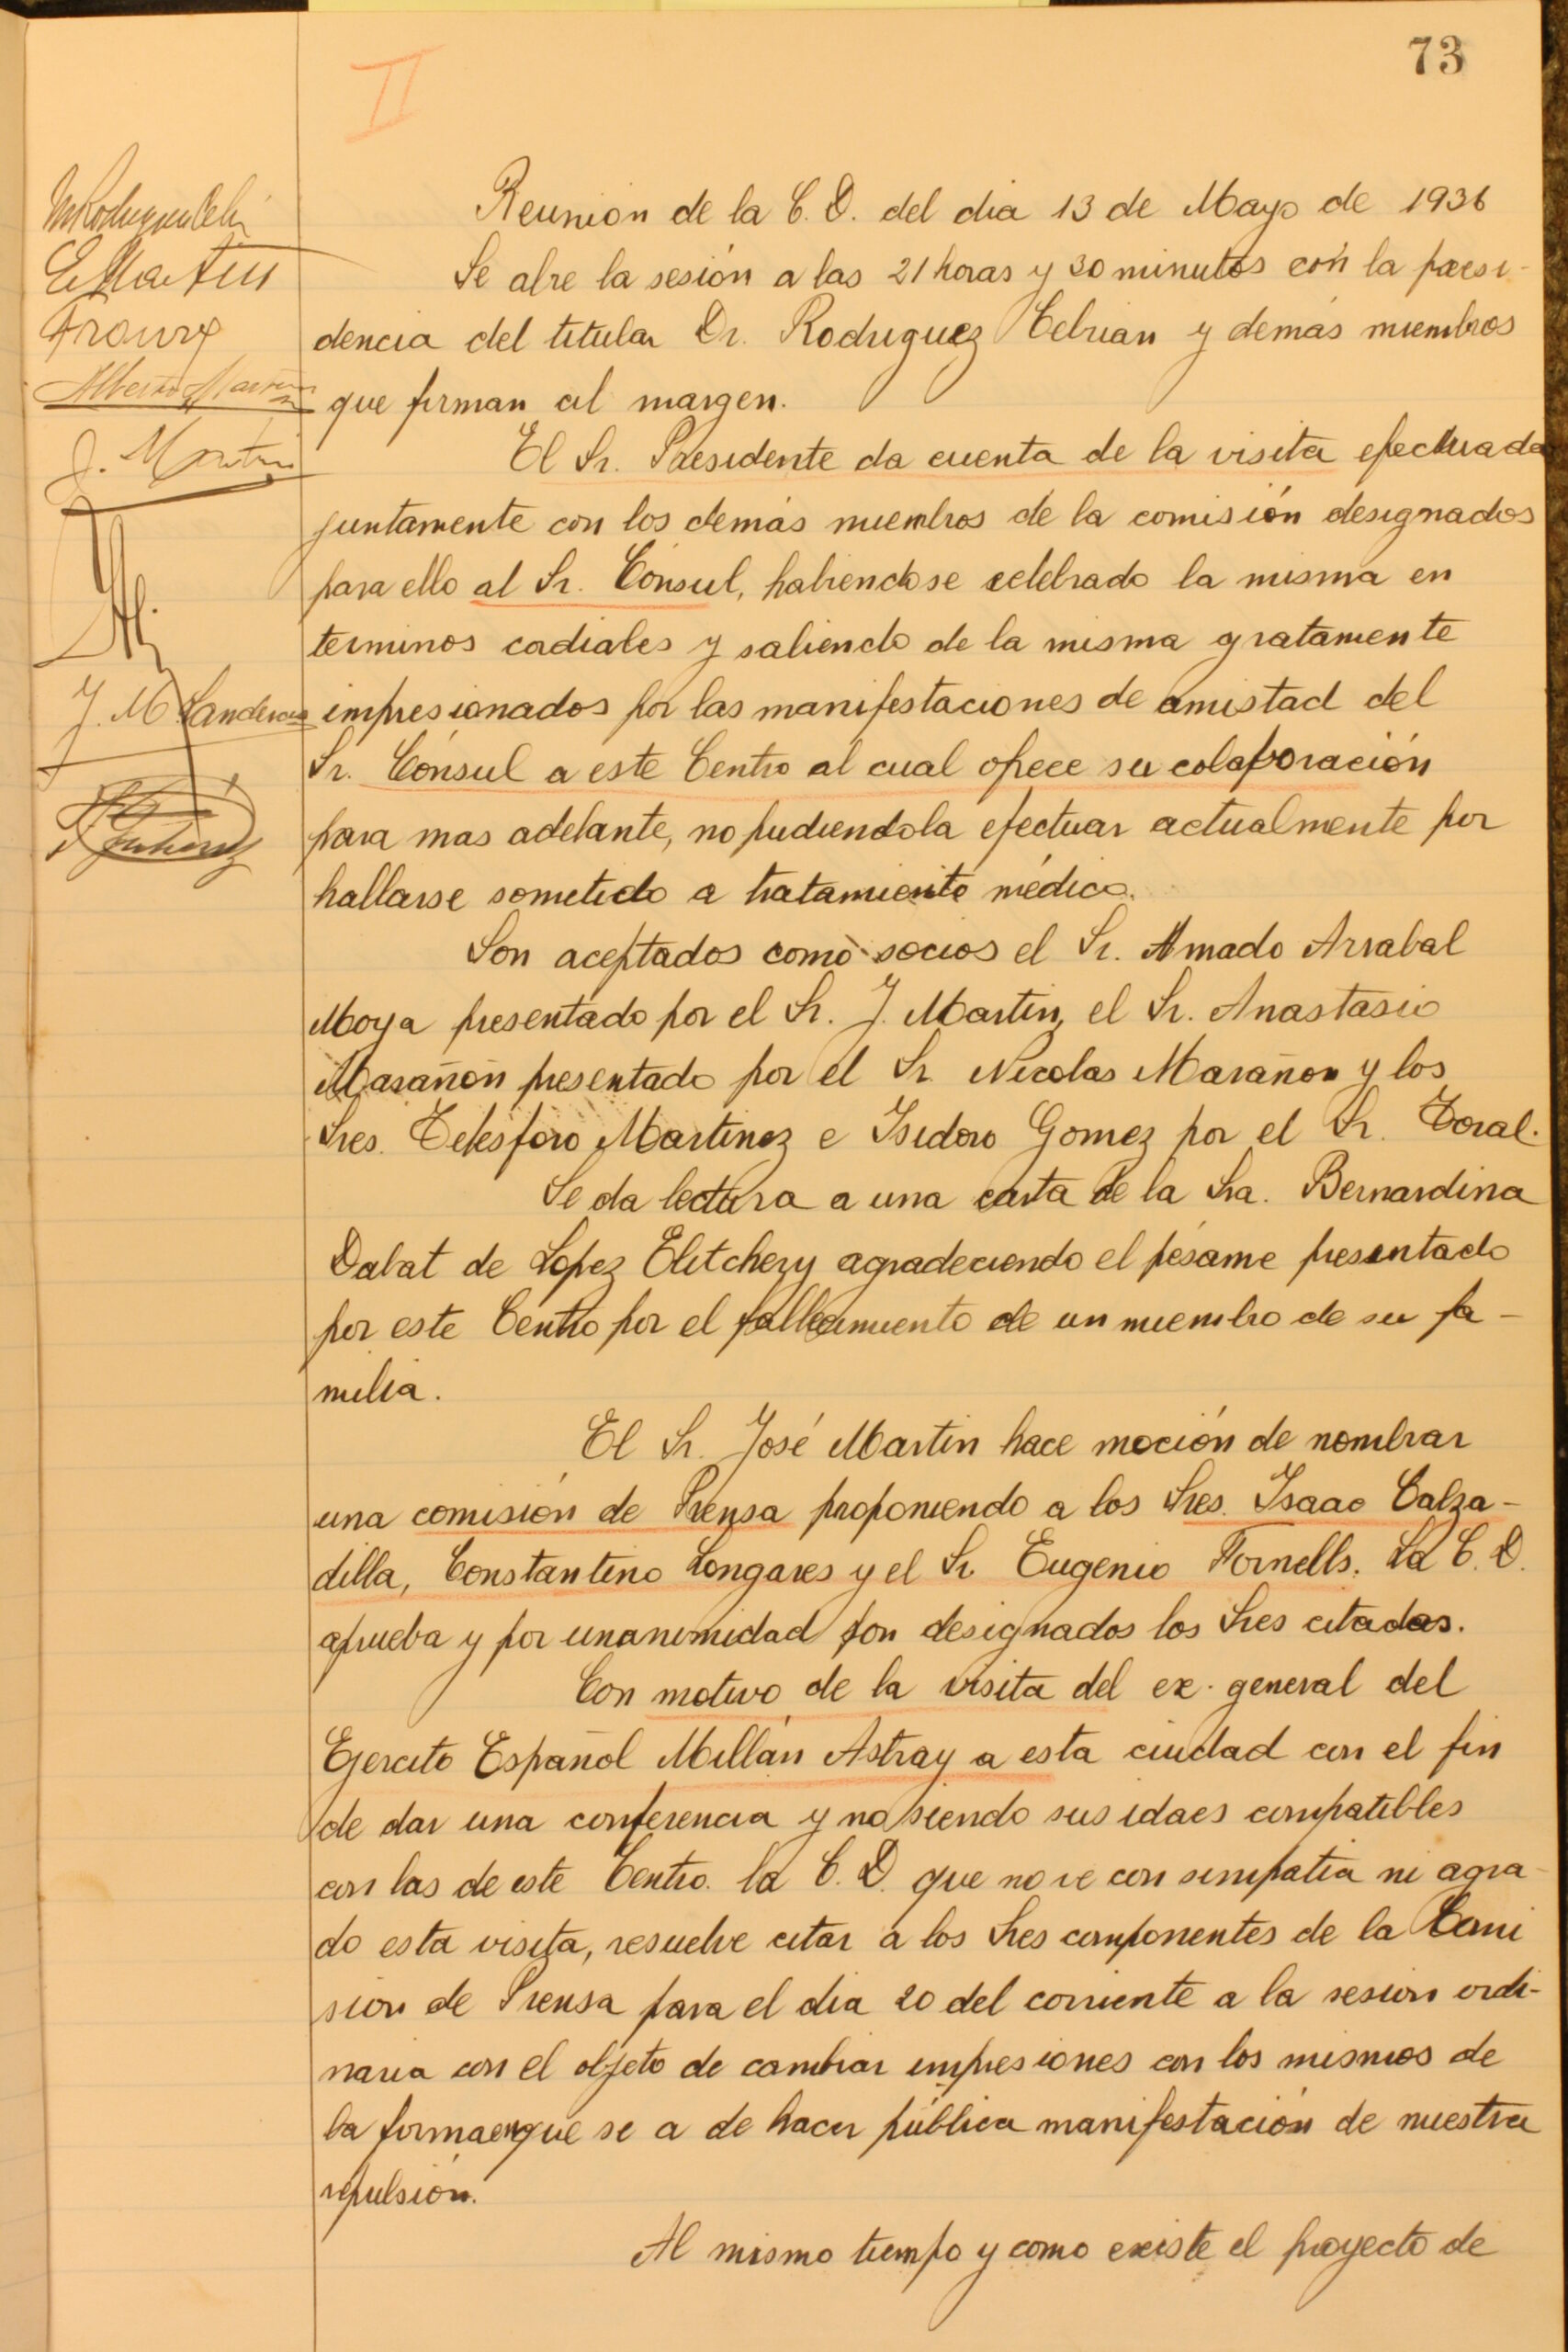 73
II
Reunion de la C. D. del dia 13 de Mayo de 1936
Se abre la sesión a las 21 horas y 30 minutos con la presi-
dencia del titular Dr. Rodriguez Cebrian y demás miembros
que firman al margen.
El Sr. Presidente da cuenta de la visita efectuada
juntamente con los demás miembros de la comisión designados
para ello al Sr. Cónsul, habiendose celebrado la misma en
terminos cordiales y saliendo de la misma gratamente
impresionados por las manifestaciones de amistad del
Sr. Cónsul a este Centro al cual ofrece su colaboración
para mas adelante, no pudiendola efectuar actualmente por
hallarse sometido a tratamiento médico.
Son aceptados como socios el Sr. Amado Arrabal
Moya presentado por el Sr. J. Martin, el Sr. Anastasio
Marañon presentado por el Sr. Nicolas Marañon y los
Sres. Telesforo Martinez e Isidoro Gomez por el Sr. Toral.
Se da lectura a una carta de la Sra. Bernardina
Dabat de Lopez agradeciendo el pésame presentado
por este Centro por el fallecimiento de un miembro de su fa-
milia.
El Sr. José Martin hace moción de nombrar
una comisión de Prensa proponiendo a los Sres. Isaac Calza-
dilla, Constantino Longares y el Sr. Eugenio Fornells. La C. D.
aprueba y por unanimidad son designados los Sres citados.
Con motivo de la visita del ex. general del
Ejercito Español Millán Astray a esta ciudad con el fin
de dar una conferencia y no siendo sus idaes compatibles
con las de este Centro. la C. D. que no ve con simpatia ni agra-
do esta visita, resuelve citar a los Sres componentes de la Comi
sion de Prensa para el dia 20 del corriente a la sesion ordi-
naria con el objeto de cambiar impresiones con los mismos de
la forma en que se a de hacer pública manifestación de nuestra
repulsión.
Al mismo tiempo y como existe el proyecto de
E. Martin
Alberto Martin
J. Martin
J. M. Landeras